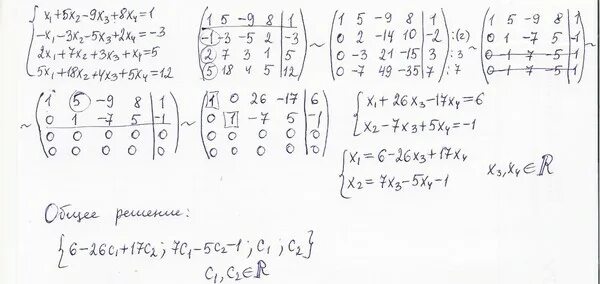 { x₁+5x₂-9x₃+8x₄=1
-x₁-3x₂-5x₃+2x₄=-3
2x₁+7x₂+3x₃+x₄=5
5x₁+18x₂+4x₃+5x₄=12
( 1 5 -9 8 | 1 )
( -1 -3 -5 2 | -3 )
( 2 7 3 1 | 5 )
( 5 18 4 5 | 12 ) ~
( 1 5 -9 8 | 1 )
( 0 2 -14 10 | -2 ) :(2)
( 0 -3 21 -15 | 3 ) :3
( 0 -7 49 -35 | 7 ) :7 ~
( 1 5 -9 8 | 1 )
( 0 1 -7 5 | -1 )
( 0 1 -7 5 | -1 )
( 0 1 -7 5 | -1 ) ~
~ ( 1 5 -9 8 | 1 )
( 0 1 -7 5 | -1 )
( 0 0 0 0 | 0 )
( 0 0 0 0 | 0 ) ~
( 1 0 26 -17 | 6 )
( 0 1 -7 5 | -1 )
( 0 0 0 0 | 0 )
( 0 0 0 0 | 0 )
{ x₁+26x₃-17x₄=6
x₂-7x₃+5x₄=-1
{ x₁=6-26x₃+17x₄
x₂=7x₃-5x₄-1
x₃,x₄∈ℝ
Общее решение:
{6-26C₁+17C₂; 7C₁-5C₂-1; C₁; C₂}
C₁,C₂∈ℝ